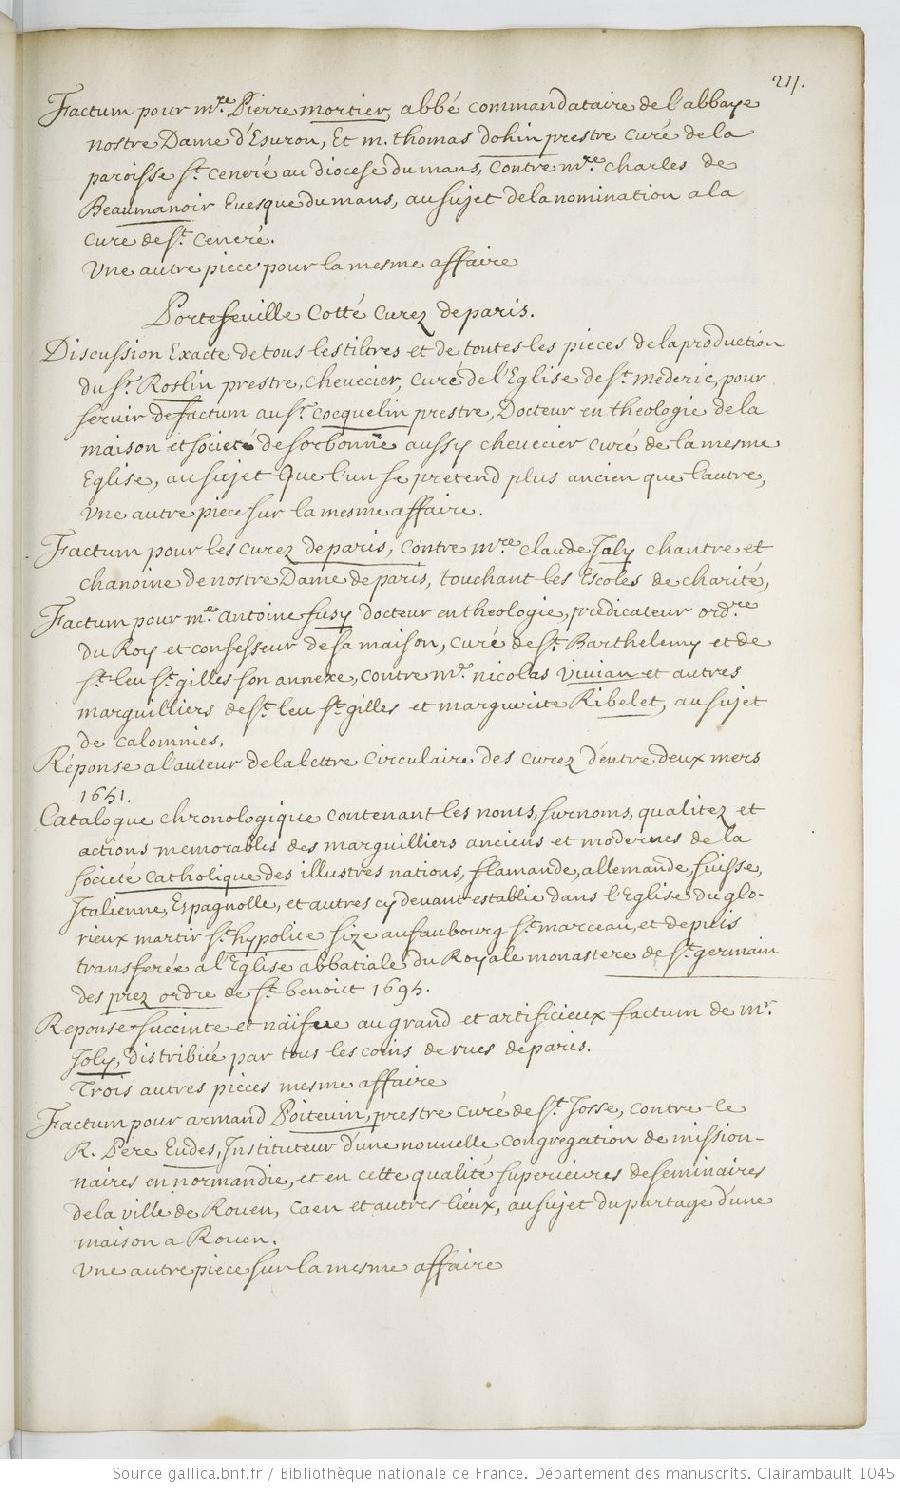 211.
Factum pour mre. Pierre mortier, abbé commandataire de l'abbaye
nostre Dame d'Esuron, Et m. thomas dohin prestre curé de la
paroisse st. Ceneré au diocese du mans, Contre mre. Charles de
Beaumanoir Euesque du mans, au sujet de la nomination a la
cure de st. Ceneré.
Une autre piece pour la mesme affaire
Portefeuille Cotté Curez de paris.
Discussion Exacte de tous les tiltres et de toutes les pieces de la production
du sr. Roslin prestre, chevecier, curé de l'Eglise de st. mederic, pour
servir de factum au sr. Cocquelin prestre, Docteur en theologie de la
maison et societé de sorbonne aussy chevecier curé de la mesme
Eglise, au sujet Que l'un se prétend plus ancien que l'autre,
Une autre piece sur la mesme affaire.
Factum pour les Curez de paris, contre mre. claude Joly chantre et
chanoine de nostre Dame de paris, touchant les Escoles de charité,
Factum pour me. Antoine fusy docteur en theologie, predicateur ordre.
du Roy et confesseur de sa maison, curé de st. Barthelemy et de
st. leu st. gilles son annexe, contre me. nicolas Vivian et autres
marguilliers de st. leu st. gilles et marguerite Ribelet, au sujet
de calomnies.
Réponse a l'auteur de la lettre Circulaire des curez d'entre deux mers
1651.
Catalogue chronologique contenant les noms, surnoms, qualitez et
actions memorables des marguilliers anciens et modernes de la
societé catholique des illustres nations, flamande, allemande, suisse,
Italienne, Espagnolle, et autres cy devant establie dans l'Eglise du glo-
rieux martir st. hypolite size au faubourg st. marceau, et depuis
transferée a l'Eglise abbatiale du Royale monastere de st. germain
des prez ordre de st. benoict 1694.
Reponse succinte et naïfue au grand et artificieux factum de mr.
Joly, distribuée par tous les coins de rues de paris.
Trois autres pieces mesme affaire
Factum pour armand Poitevin, prestre curé de st. Josse, contre le
R. Pere Eudes, Instituteur d'une nouvelle Congregation de mission-
naires en normandie, et en cette qualité superieures de seminaires
de la ville de Rouen, Caen et autres lieux, au sujet du partage d'une
maison a Rouen.
Une autre piece sur la mesme affaire
Source gallica.bnf.fr / Bibliothèque nationale de France. Département des manuscrits. Clairambault 1045